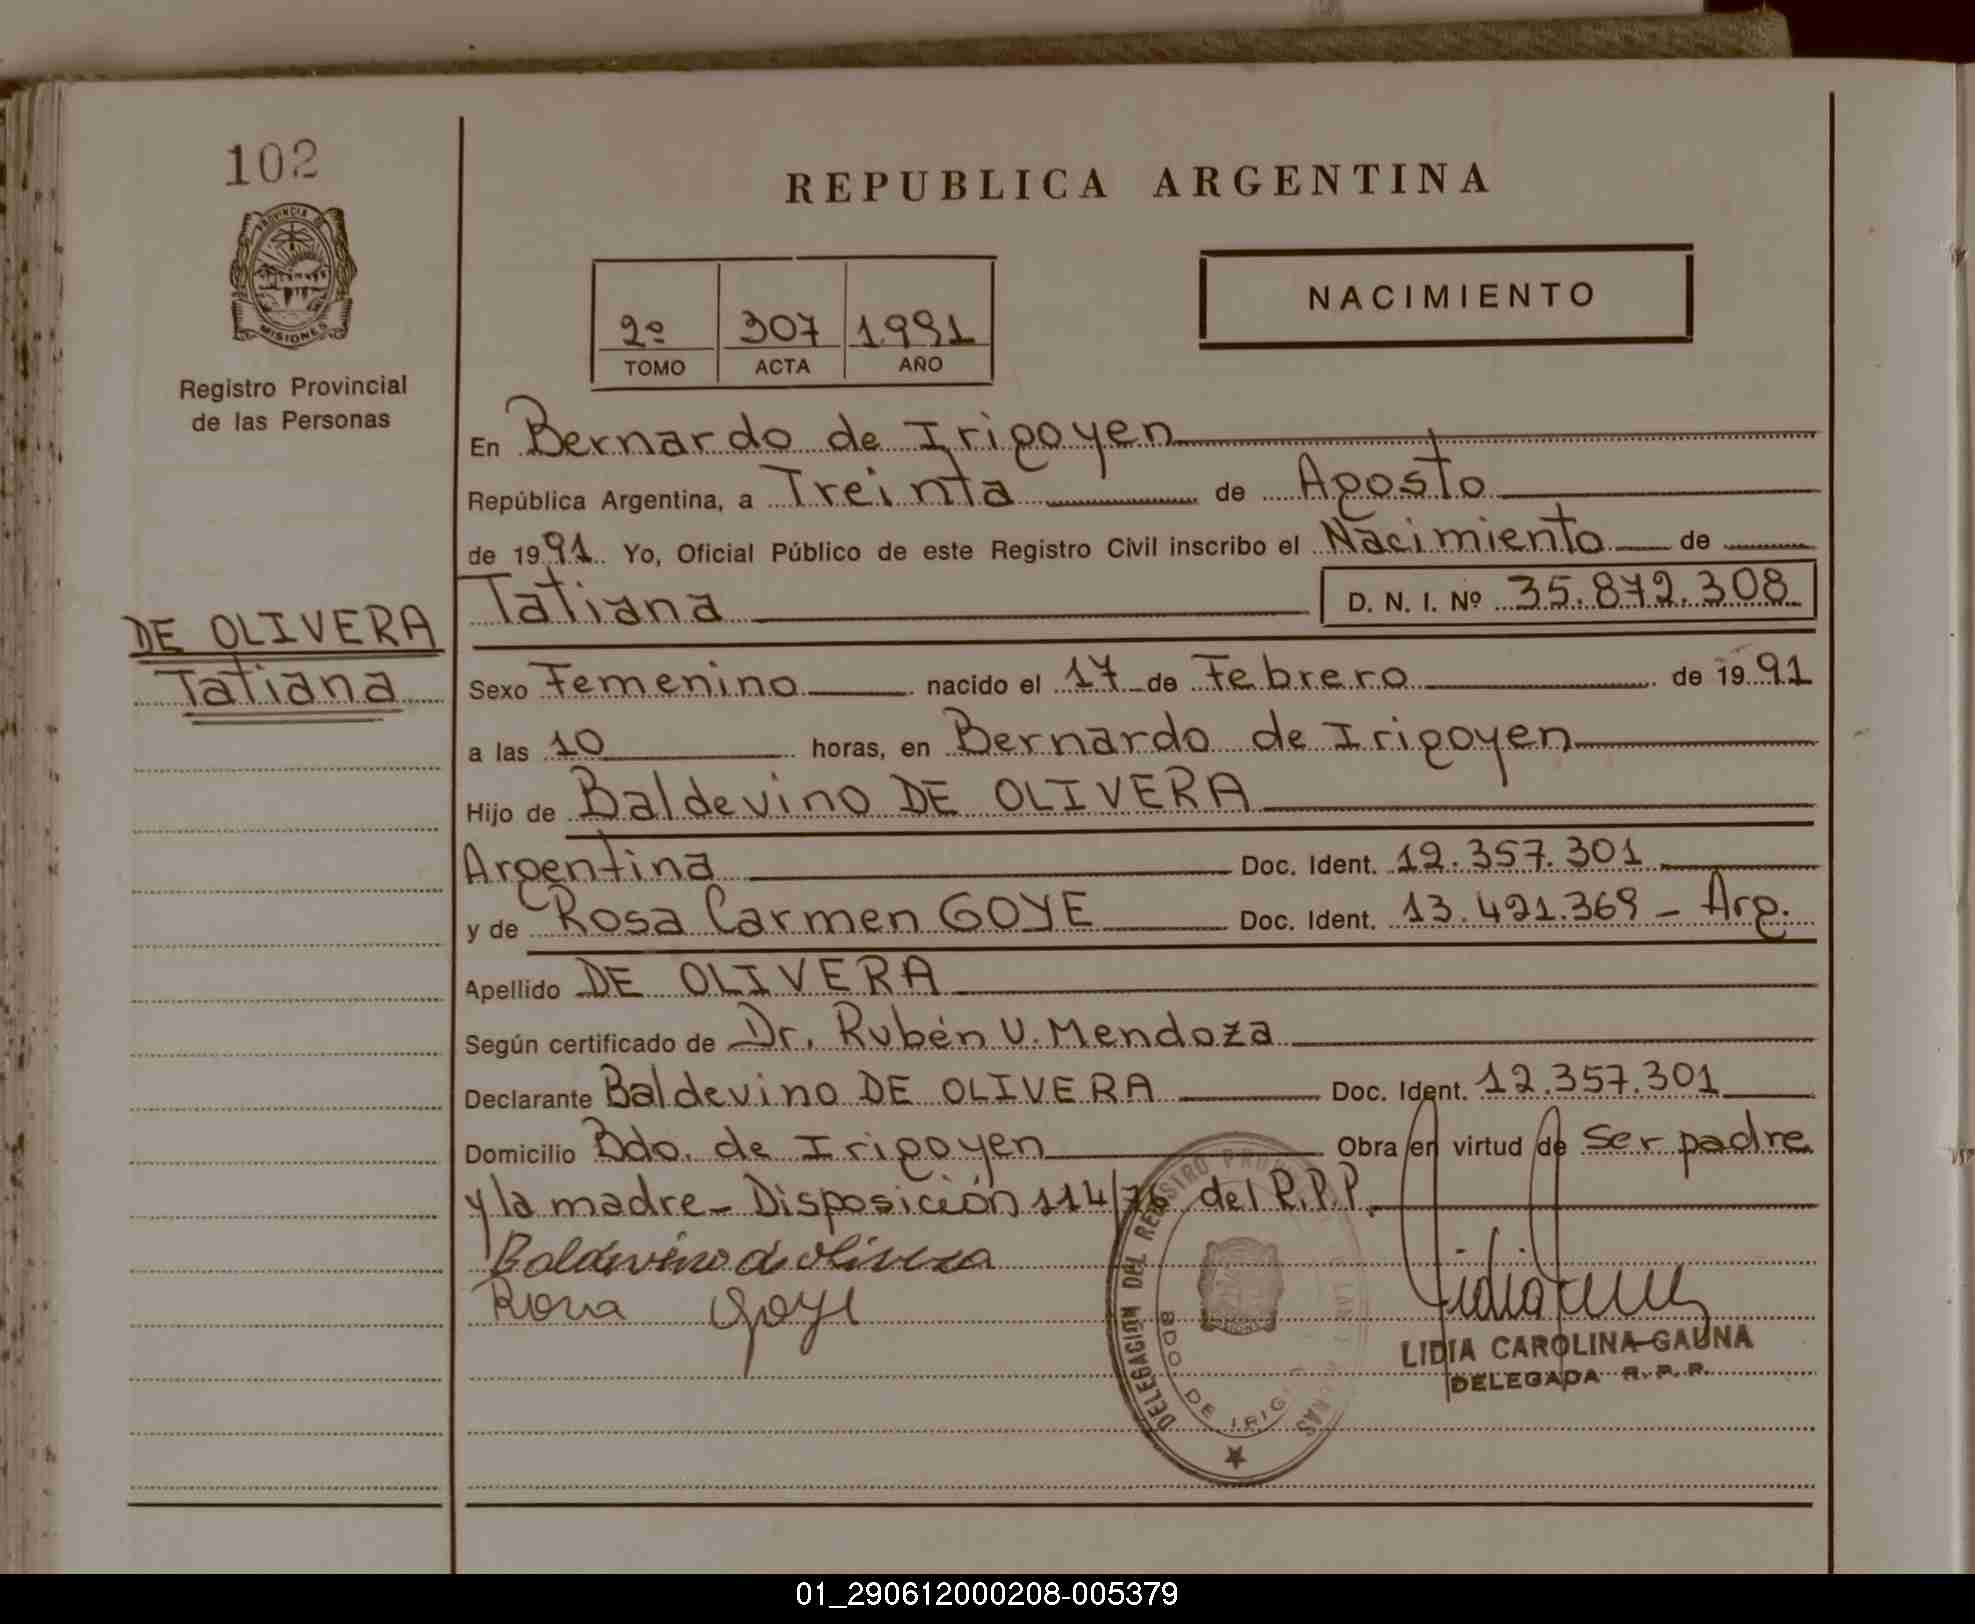 102
PROVINCIA DE
MISIONES
Registro Provincial
de las Personas
DE OLIVERA
Tatiana
REPUBLICA ARGENTINA
2º 307 1.991
TOMO ACTA AÑO
NACIMIENTO
En Bernardo de Irigoyen
República Argentina, a Treinta de Agosto
de 1991 Yo, Oficial Público de este Registro Civil inscribo el Nacimiento de
Tatiana D. N. I. Nº 35.872.308
Sexo Femenino nacido el 17 de Febrero de 1991
a las 10 horas, en Bernardo de Irigoyen
Hijo de Baldevino DE OLIVERA
Argentina Doc. Ident. 12.357.301
y de Rosa Carmen GOYE Doc. Ident. 13.421.369 - Arg.
Apellido DE OLIVERA
Según certificado de Dr. Rubén U. Mendoza
Declarante Baldevino DE OLIVERA Doc. Ident. 12.357.301
Domicilio Bdo. de Irigoyen Obra en virtud de Ser padre
y la madre - Disposición 114/76 del R.P.P.
Baldevino de Olivera
Rosa Goye
DELEGACION DEL REGISTRO
BDO. DE IRIG
LIDIA CAROLINA GAUNA
DELEGADA R.P.P.
01_290612000208-005379